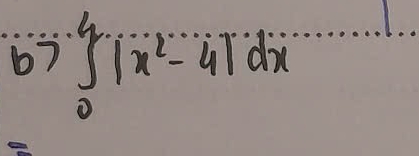 b) ∫₀⁴ |x² - 4| dx